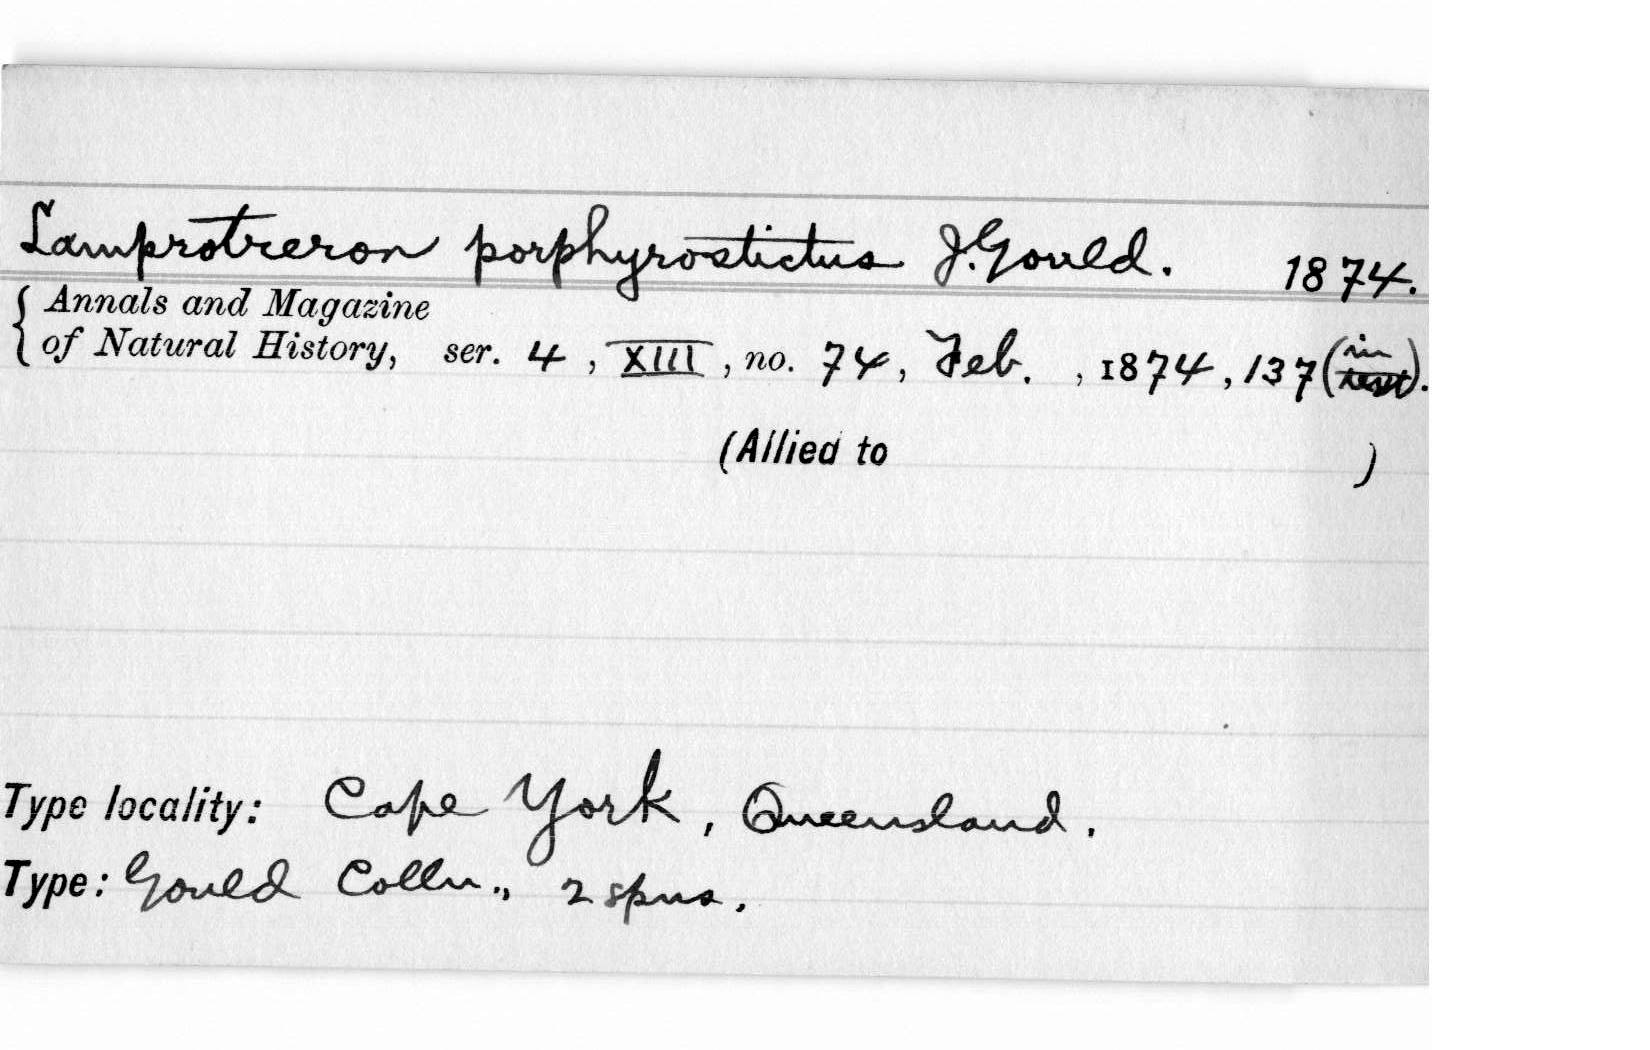 Lamprotreron porphyrostictus J. Gould. 1874.
{ Annals and Magazine
of Natural History, ser. 4, XIII, no. 74, Feb., 1874, 137 (in text).
(Allied to )
Type locality: Cape York, Queensland.
Type: Gould Colln., 2 spns.